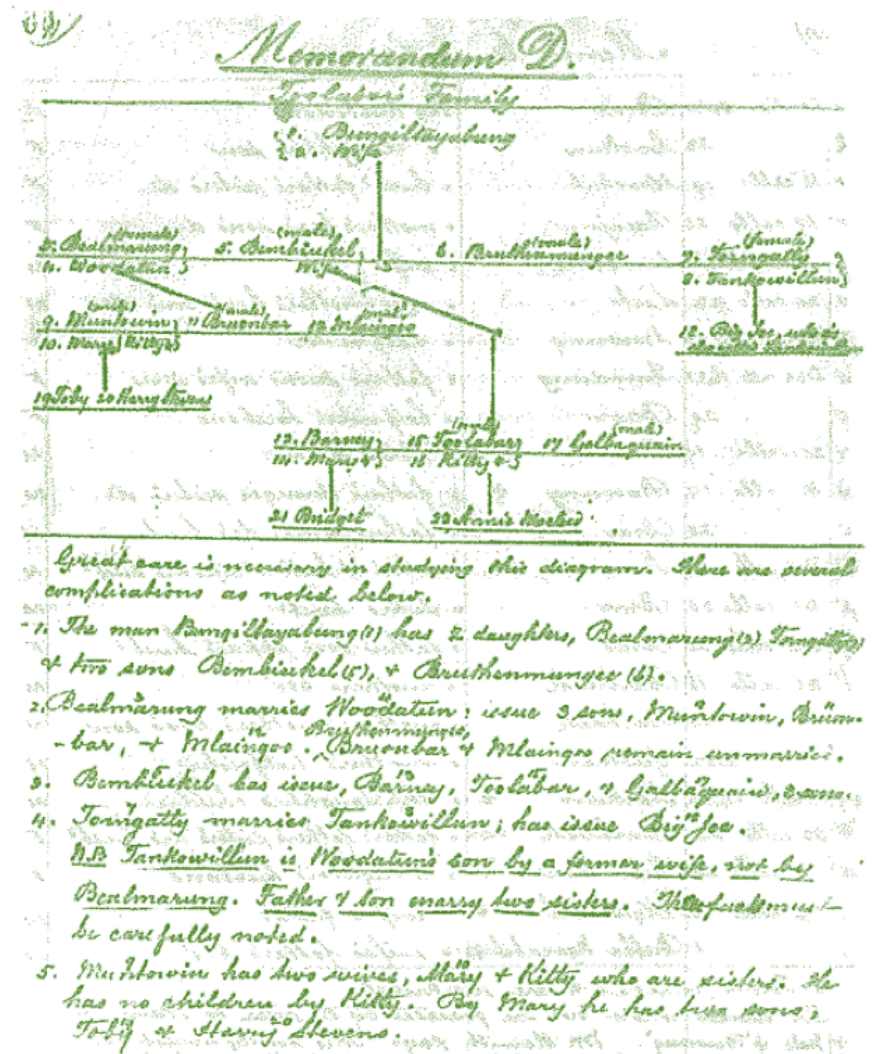 Memorandum D.
Toolabar's Family
1. Bungiltayabung
2. Wife
(female) (male) (male) (female)
3. Bealmarung 5. Bembickel 6. Bruthenmungee 7. Torngatty
4. Woodatun Wife 8. Tankowillun
(male) (male) (male)
9. Muntowin 11 Bruonbar 12. Mlaingoo
10. Mary Kitty Big Joe, who is
19 Toby 20 Harry Stevens
(male) (male)
13. Barney 15 Toolabar 17 Galbaquain
14. Mary 16 Kitty
21 Bridget 22 Annie McLeod
Great care is necessary in studying this diagram. There are several
complications as noted below.
1. The man Bungiltayabung (1) has 2 daughters, Bealmarung (3) Torngatty (7)
& two sons Bembickel (5), & Bruthenmungee (6).
2. Bealmarung marries Woodatun; issue 3 sons, Muntowin, Bruon-
-bar, & Mlaingoo. Bruthenmungee, Bruonbar & Mlaingoo remain unmarried.
3. Bembickel has issue, Barney, Toolabar, & Galbaquain, 3 sons.
4. Torngatty marries Tankowillun; has issue Big Joe.
N.B Tankowillun is Woodatun's son by a former wife, not by
Bealmarung. Father & son marry two sisters. These facts must
be carefully noted.
5. Muntowin has two wives, Mary & Kitty who are sisters. He
has no children by Kitty. By Mary he has two sons,
Toby & Harry Stevens.